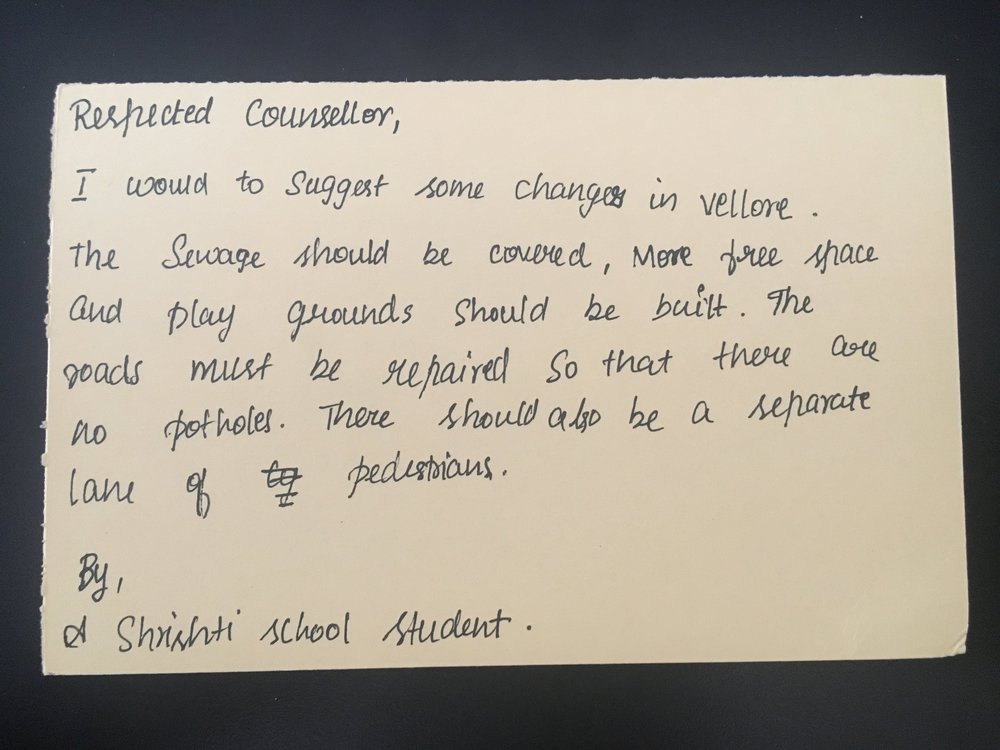 Respected Counsellor,
I would to suggest some changes in vellore.
The Sewage should be covered, More free space
and play grounds should be built. The
roads must be repaired so that there are
no potholes. There should also be a separate
lane of pedestrians.
By,
A Shrishti school student.